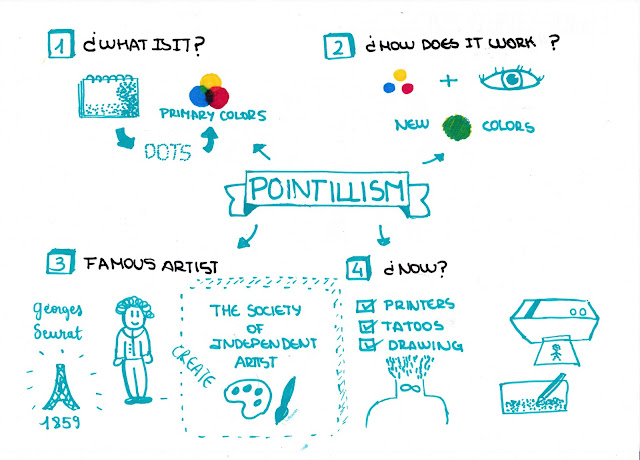 1 ¿WHAT IS IT?
PRIMARY COLORS
DOTS
2 ¿HOW DOES IT WORK ?
+
NEW COLORS
POINTILLISM
3 FAMOUS ARTIST
Georges
Seurat
1859
THE SOCIETY
OF
INDEPENDENT
ARTIST
CREATE
4 ¿NOW?
PRINTERS
TATOOS
DRAWING